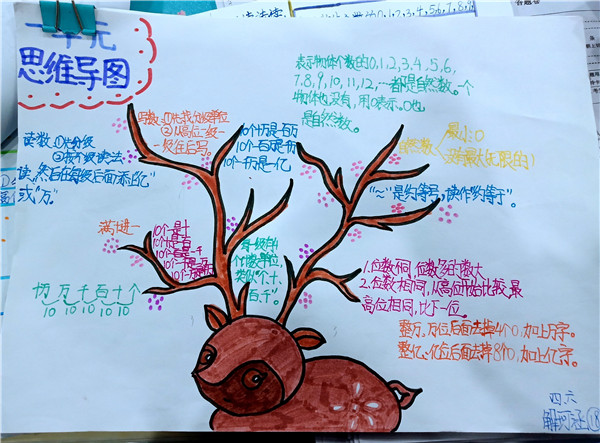 一单元
思维导图
表示物体个数的0,1,2,3,4,5,6,
7,8,9,10,11,12,…都是自然数。一个
物体也没有,用0表示。0也
是自然数。
自然数
最小:0
没有最大(无限的)
"≈"是约等号,读作"约等于"。
写数:①先找分级单位
②从高位一级一
级往后写。
读数:①先分级
②按个级读法
读,然后在每级后面添"亿"
或"万"。
10个十万是百万
10个百万是千万
10个千万是一亿
满十进一
10个一是十
10个十是百
10个百是一千
每一级的
个数单位
类似"个、十、
百、千"。
十万 万 千 百 十 个
10 10 10 10 10
1.位数不同,位数多的数大
2.位数相同,从高位开始比较,最
高位相同,比下一位。
整万:万位后面去掉4个0,加上万字。
整亿:亿位后面去掉8个0,加上亿字。
四.六
18